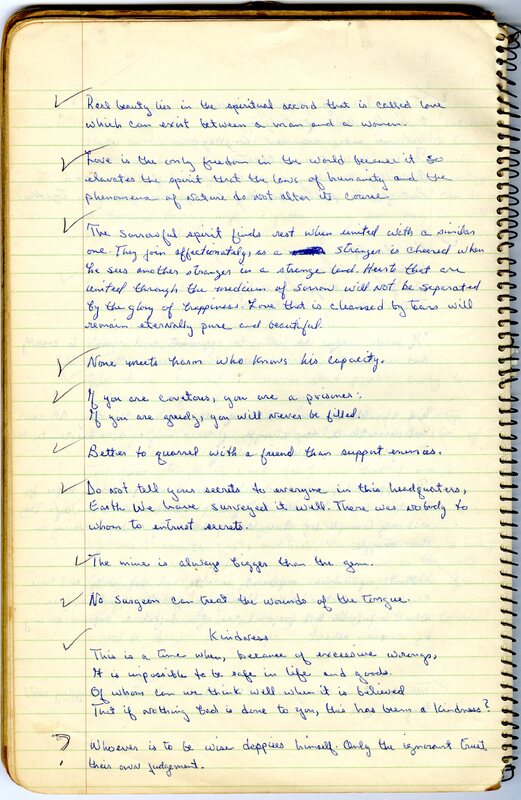 Real beauty lies in the spiritual accord that is called love
which can exist between a man and a women.
Love is the only freedom in the world because it so
elevates the spirit that the laws of humanity and the
phenomena of nature do not alter its course.
The sorrowful spirit finds rest when united with a similar
one. They join affectionately, as a stranger is cheered when
he sees another stranger in a strange land. Hearts that are
united through the medium of sorrow will not be separated
by the glory of happiness. Love that is cleansed by tears will
remain eternally pure and beautiful.
None meets harm who knows his capacity.
If you are covetous, you are a prisoner:
If you are greedy, you will never be filled.
Better to quarrel with a friend than support enemies.
Do not tell your secrets to everyone in this headquarters,
Earth. We have surveyed it well. There was nobody to
whom to entrust secrets.
The mine is always bigger than the gem.
No surgeon can treat the wounds of the tongue.
Kindness
This is a time when, because of excessive wrongs,
It is impossible to be safe in life and goods.
Of whom can we think well when it is believed
That if nothing bad is done to you, this has been a kindness?
? Whoever is to be wise despises himself. Only the ignorant trust
their own judgement.